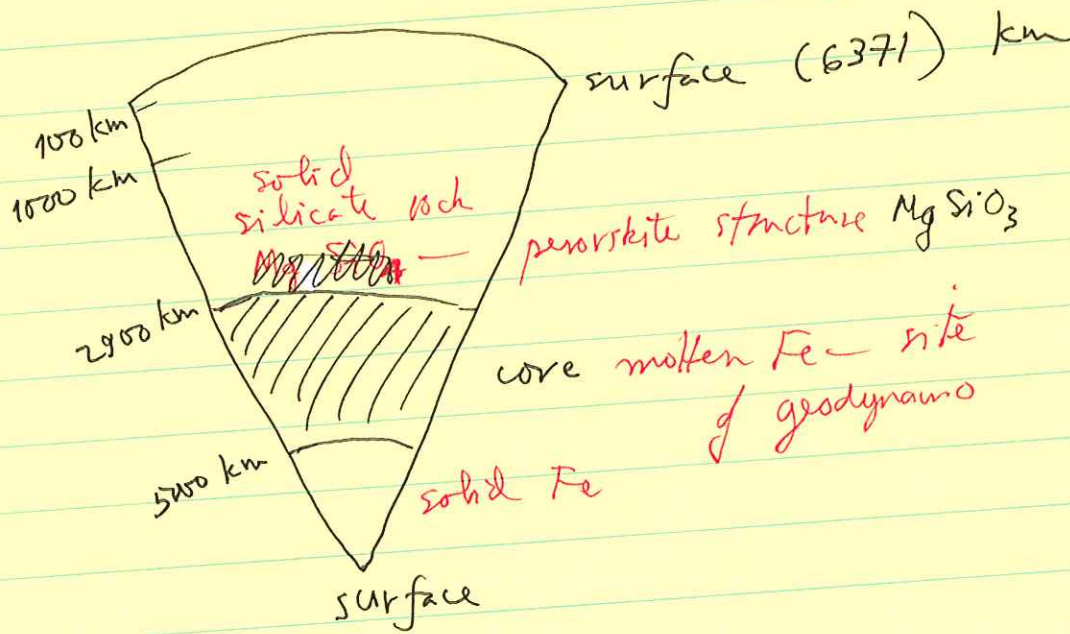 surface (6371) km
100 km
1000 km
solid
silicate rock
— perovskite structure MgSiO3
2900 km
core molten Fe — site
of geodynamo
5000 km
solid Fe
surface